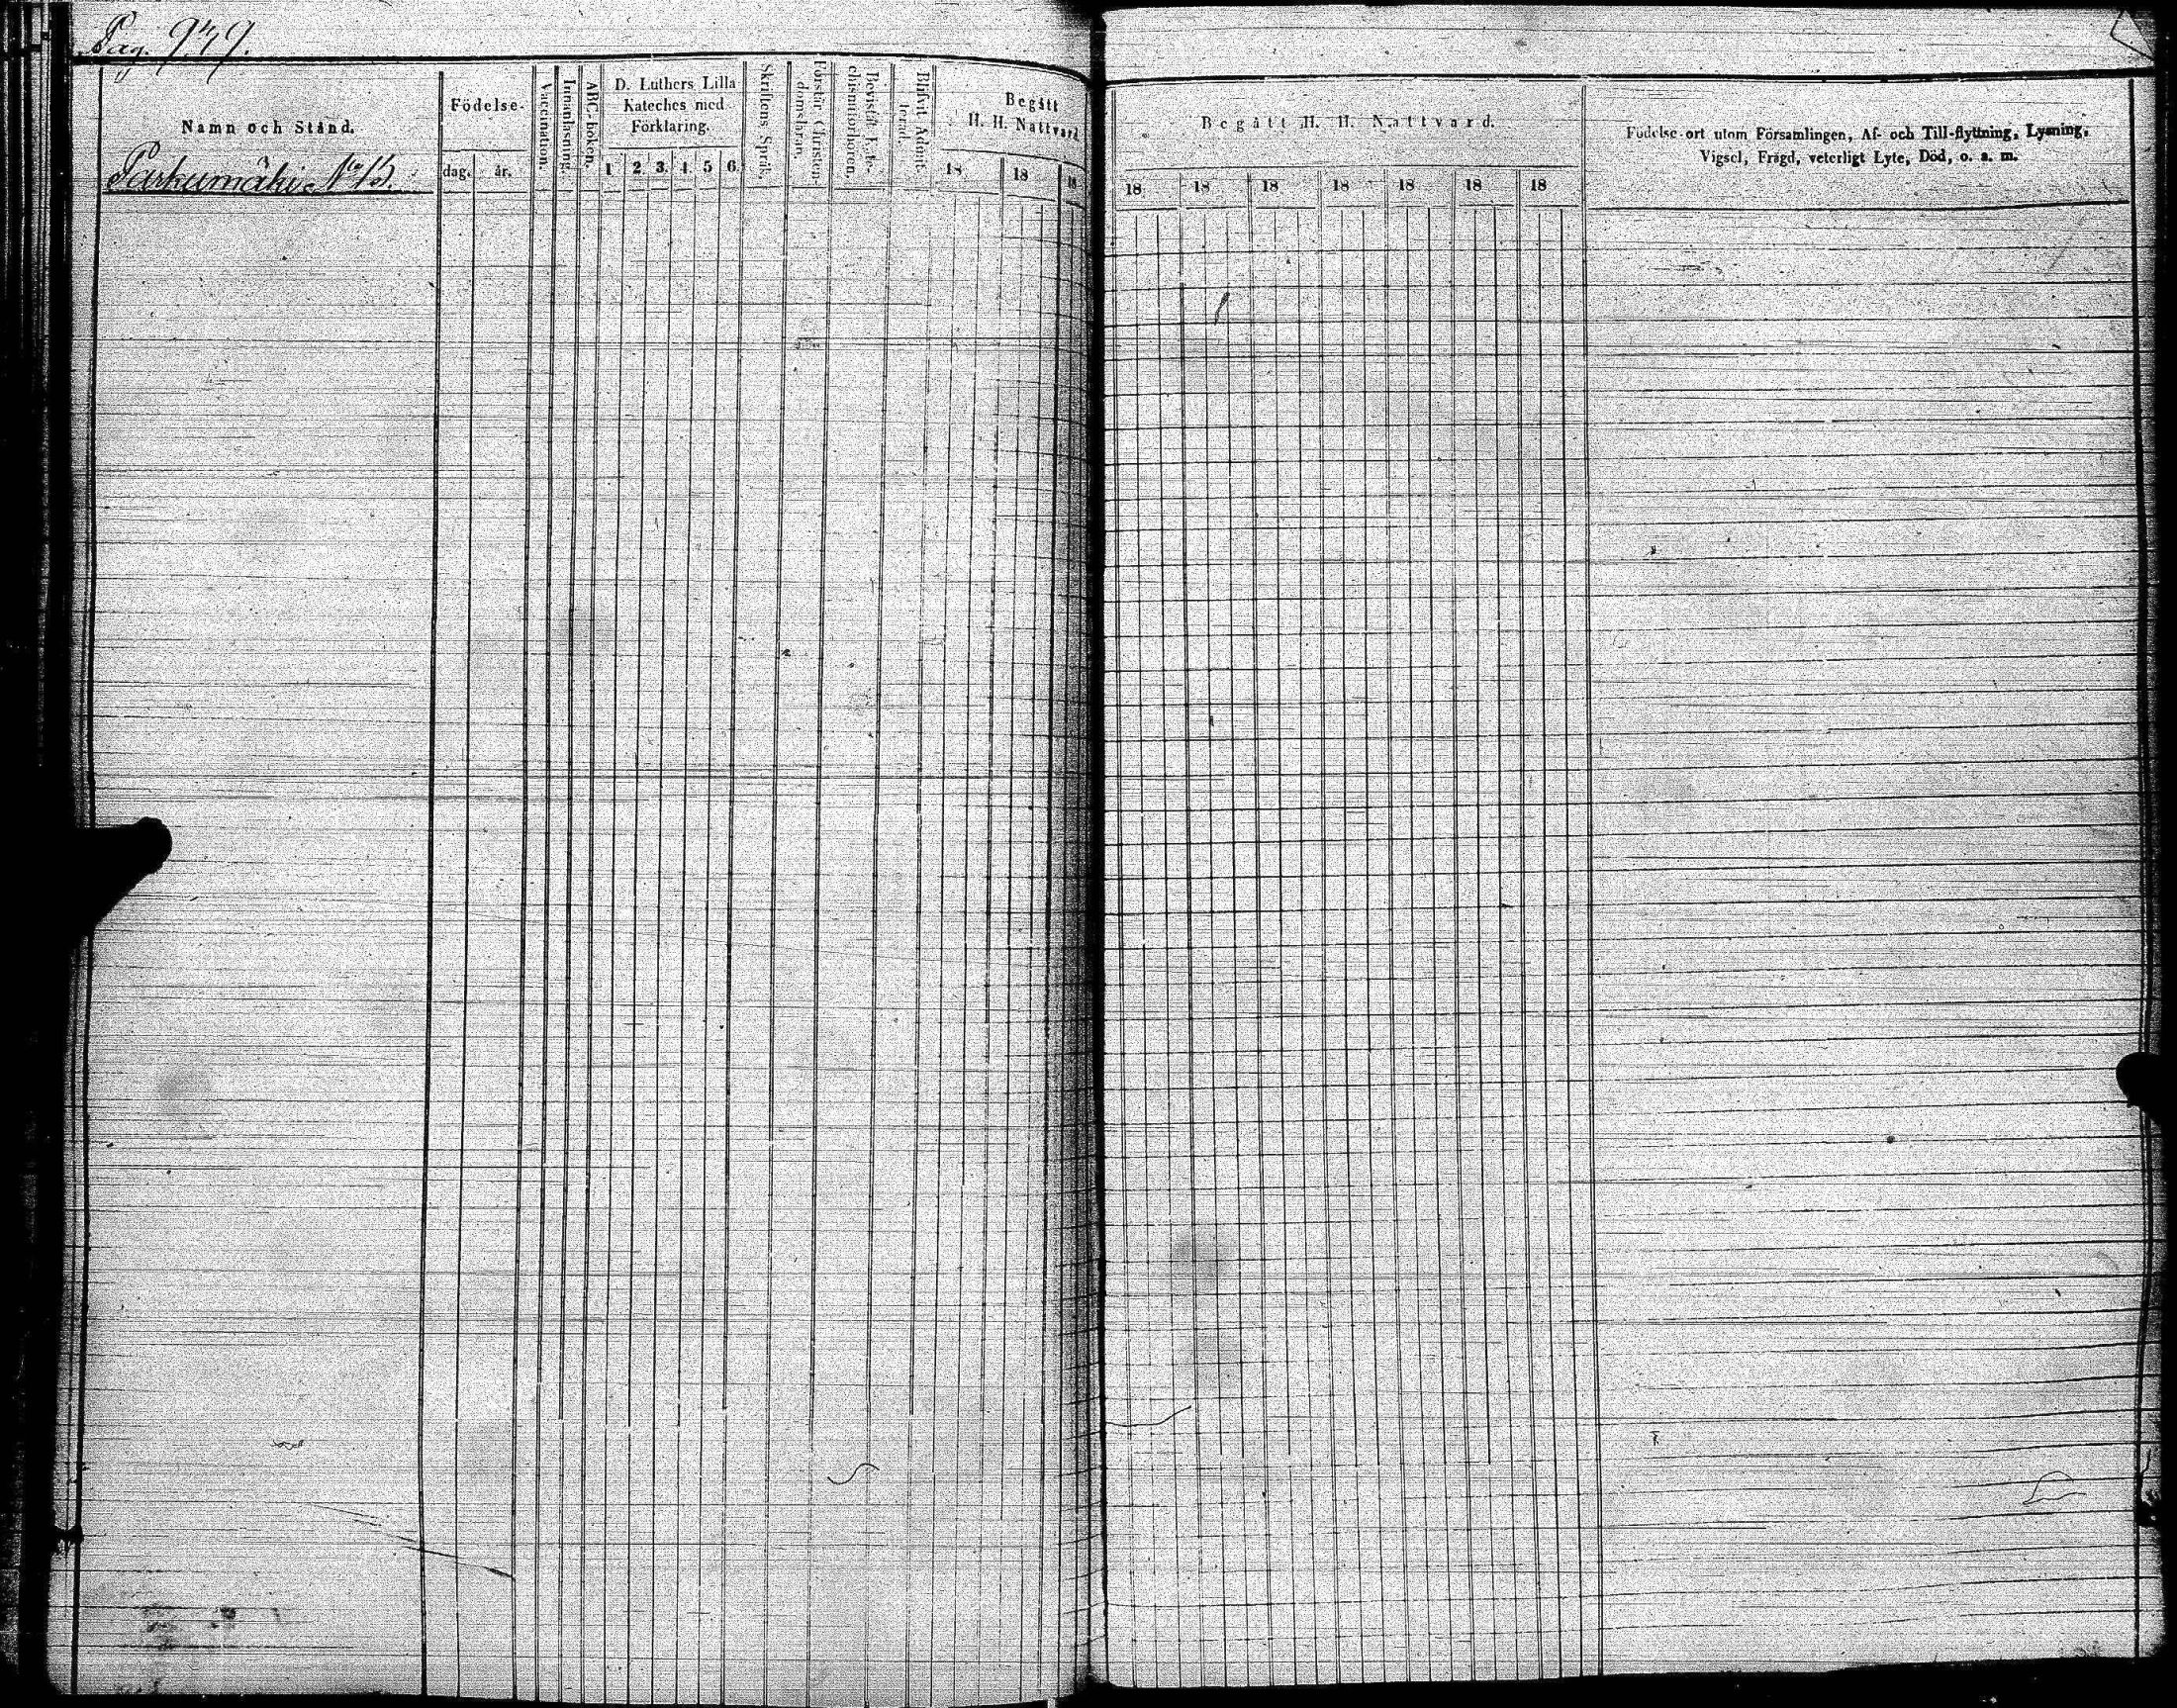 Pag. 949.
Namn och Stånd.
Parkumäki No 13.
Födelse-
dag. år.
Vaccination.
Innanläsning.
ABC-boken.
D. Luthers Lilla
Kateches med
Förklaring.
1 2. 3. 4. 5 6.
Skriftens Språk.
Förstår Christen-
domsläran.
Bevistat Kate-
chismiförhören.
Blifvit Admit-
terad.
Begått
H. H. Nattvard
18 18 18
Begått H. H. Nattvard.
18 18 18 18 18 18 18
Födelse-ort utom Församlingen, Af- och Till-flyttning, Lysning,
Vigsel, Frägd, veterligt Lyte, Död, o. s. m.